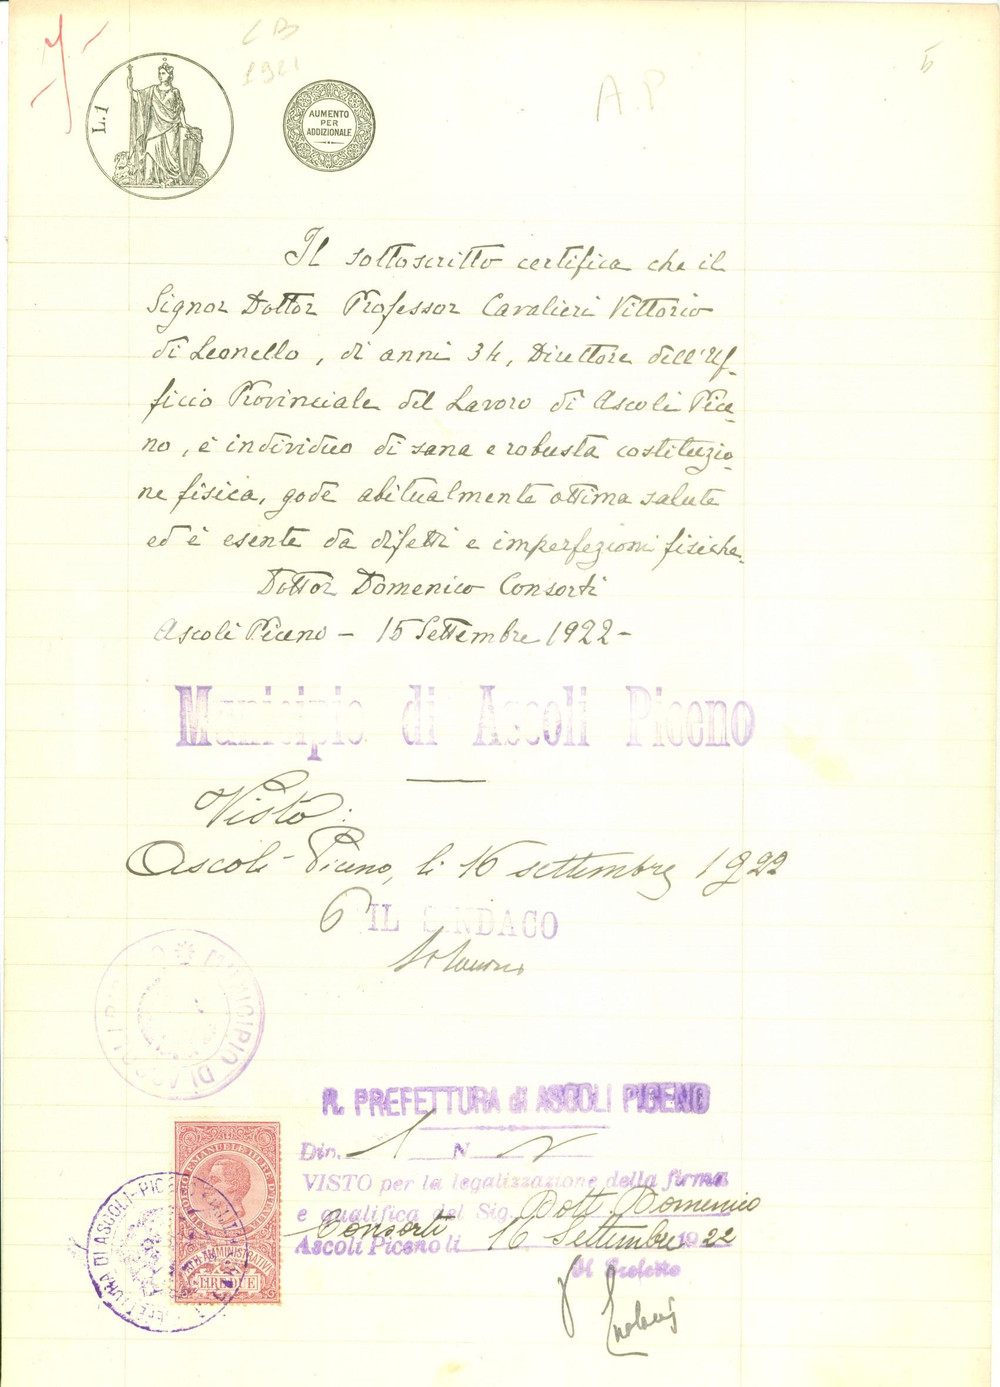 CB
1921
A.P
L.1
AUMENTO
PER
ADDIZIONALE
Il sottoscritto certifica che il
Signor Dottor Professor Cavalieri Vittorio
di Leonello, di anni 34, Direttore dell'Uf-
ficio Provinciale del Lavoro di Ascoli Pice-
no, è individuo di sana e robusta costituzio-
ne fisica, gode abitualmente ottima salute
ed è esente da difetti e imperfezioni fisiche.
Dottor Domenico Consorti
Ascoli Piceno - 15 Settembre 1922 -
Municipio di Ascoli Piceno
Visto:
Ascoli Piceno, li 16 settembre 1922
IL SINDACO
MUNICIPIO DI ASCOLI
R. PREFETTURA di ASCOLI PICENO
Div. 1 N
VISTO per la legalizzazione della firma
e qualifica del Sig. Dott. Domenico
Consorti
Ascoli Piceno li 16 Settembre 1922
Il Prefetto
VITTORIO EMANUELE III RE D'ITALIA
ATTI AMMINISTRATIVI
LIRE DUE
PREFETTURA DI ASCOLI-PICENO